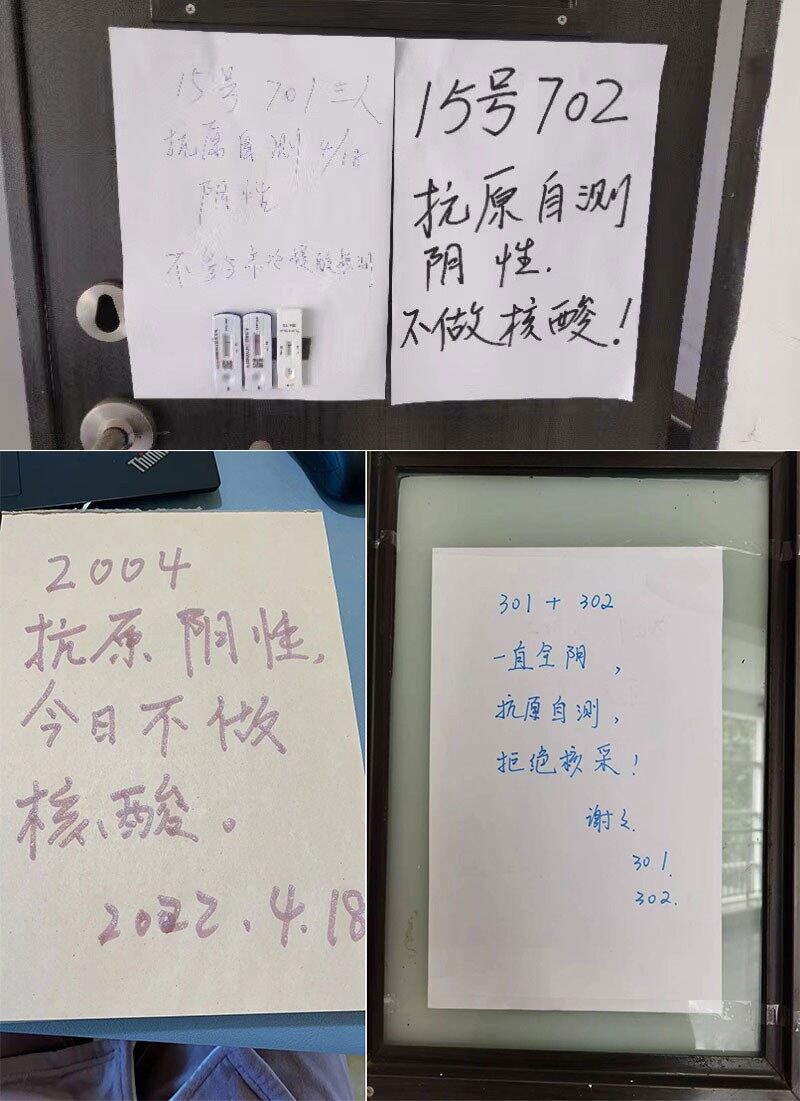 15号 701 三人
抗原自测 4/18
阴性
不参与
15号702
抗原自测
阴性.
不做核酸!
Think
2004
抗原阴性,
今日不做
核酸。
2022.4.18
301 + 302
一直全阴,
抗原自测,
拒绝核采!
谢々
301.
302.